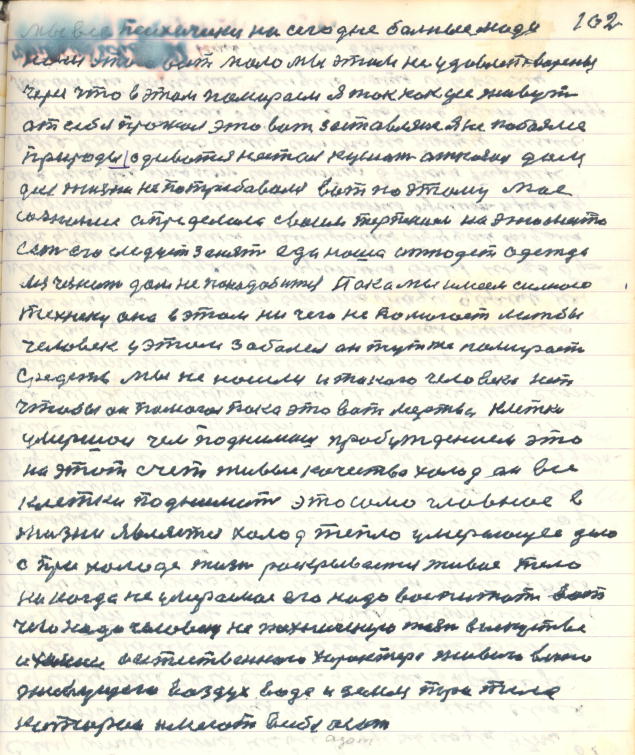 162
мы все психически на сегодне больные люде
нам этого вот мало мы этим не удовлетворены
через что в этом помираем Я так как все живут
от себя прогнал это вот заставляне Я не побоялся
природы одиватся не стал кушать отказал дом
для жизни не потребовался вот поэтому мое
сознание определило своим терпением на это место
сем его следует занять еда наша отпадет одежда
лишняя дом не понадобится Пока мы имеем сильного
технеку она в этом ни чего не помогает лишбы
человек у этом заболел он тут же помирает
Средств мы не нашли и такого человека нет
чтобы он помогал пока это вот мертва клетка
умершая чем поднимиш пробуждением это
на этот счет живые качества холод он все
клетки поднимает это само главное в
жизни является холод тепло умерающее дело
а при холоде жизнь раскрывается живое тело
ни когда не умераемое его надо воспитать вот
чего надо человеку не технического в искустве
и химии естественного характера живого
живущего воздух вода и земля три тела
которые имеют в себе